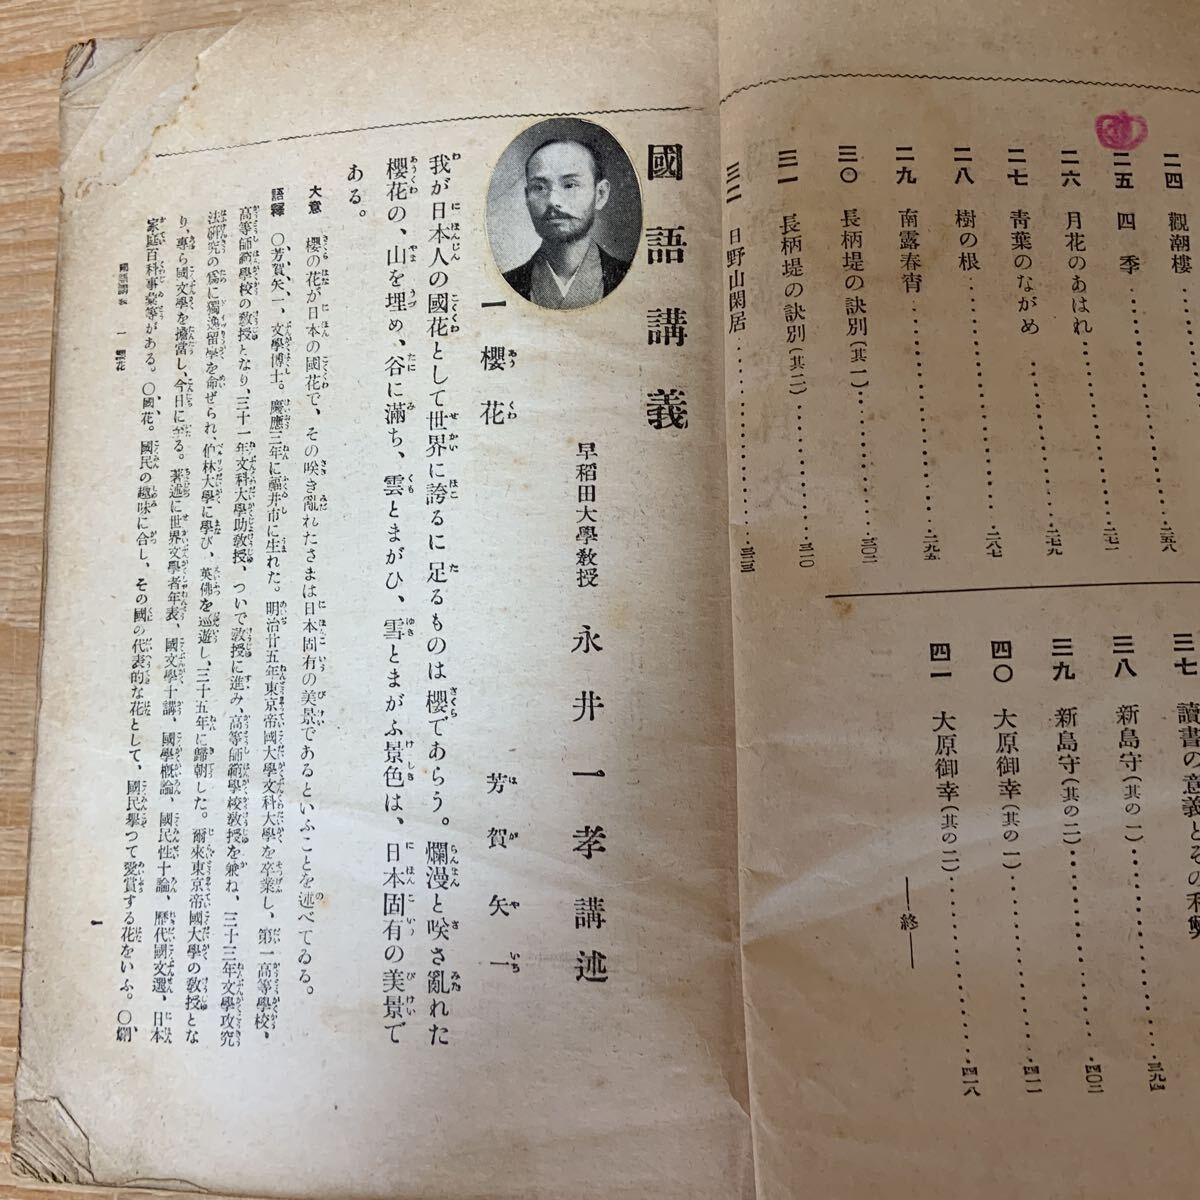 二四 觀潮樓……二五八
二五 四季……二七一
二六 月花のあはれ……二七九
二七 靑葉のながめ……二八七
二八 樹の根
二九 南露春宵……二九五
三〇 長柄堤の訣別(其一)……三〇二
三一 長柄堤の訣別(其二)……三一〇
三二 日野山閑居……三二三
三七 讀書の意義とその利
三八 新島守(其の一)……三九四
三九 新島守(其の二)……四〇二
四〇 大原御幸(其の一)……四一一
四一 大原御幸(其の二)……四一八
―終―
國語講義
早稻田大學敎授 永井一孝講述
一 櫻花 芳賀矢一
我が日本人の國花として世界に誇るに足るものは櫻であらう。爛漫と咲き亂れた
櫻花の、山を埋め、谷に滿ち、雲とまがひ、雪とまがふ景色は、日本固有の美景で
ある。
大意 櫻の花が日本の國花で、その咲き亂れたさまは日本固有の美景であるといふことを述べてゐる。
語釋 〇芳賀矢一、文學博士。慶應三年に福井市に生れた。明治廿五年東京帝國大學文科大學を卒業し、第一高等學校、
高等師範學校の敎授となり、三十一年文科大學助敎授、ついで敎授に進み、高等師範學校敎授を兼ね、三十三年文學攻究
法硏究の爲に獨逸留學を命ぜられ、伯林大學に學び、英佛を巡遊し、三十五年に歸朝した。爾來東京帝國大學の敎授とな
り、專ら國文學を擔當し、今日に至る。著述に世界文學者年表、國文學十講、國學槪論、國民性十論、歷代國文選、日本
家庭百科事彙等がある。〇國花。國民の趣味に合し、その國の代表的な花として、國民擧つて愛賞する花をいふ。〇爛
國語講義 一 櫻花
一